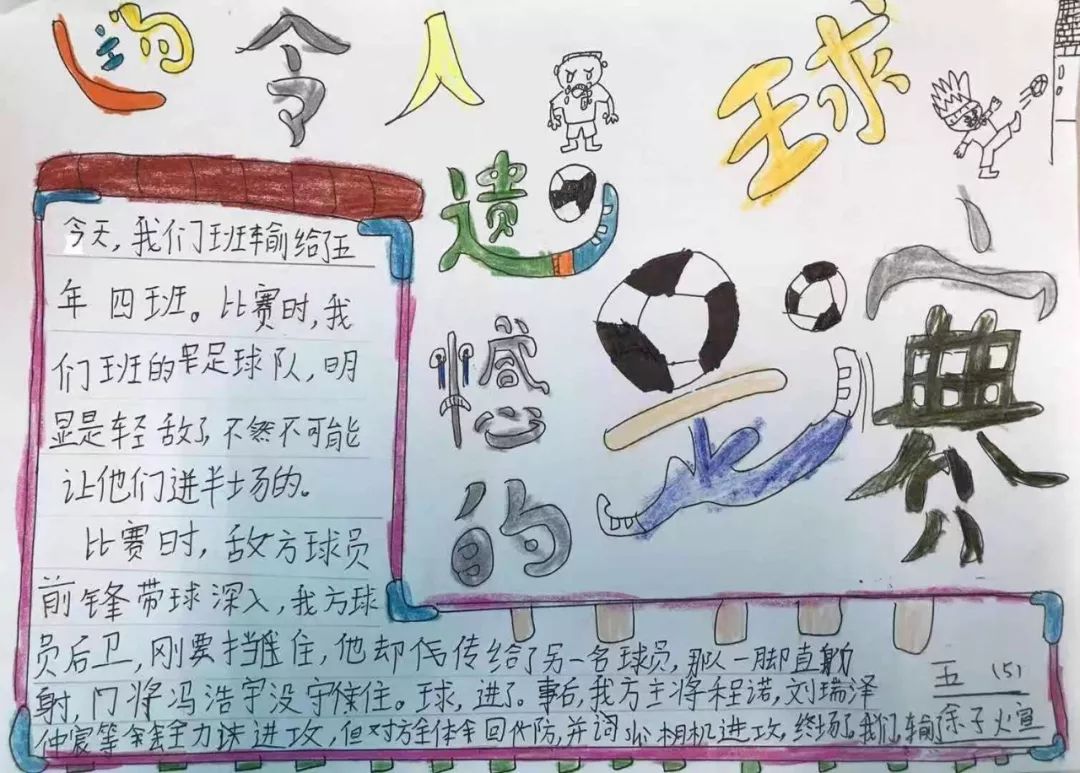 令人
球
遗
憾
的
今天，我们班输给了五
年四班。比赛时，我
们班的足球队，明
显是轻敌了不然不可能
让他们进半场的。
比赛时，敌方球员
前锋带球深入，我方球
员后卫，刚要挡住，他却传给了另一名球员，那人一脚直
射，门将冯浩宇没守住。球，进了。事后，我方主将程诺，刘瑞泽
仲宸等全力进攻，但对方全体回防，并相机进攻，终场了，我们输了
五（5）
余子煊